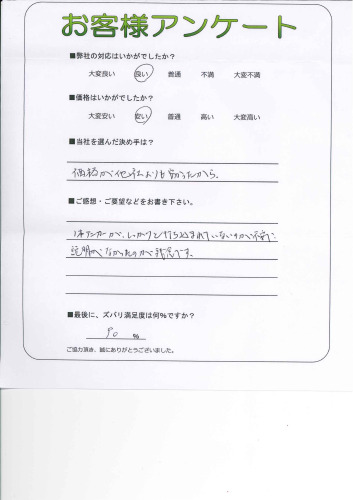 お客様アンケート
■弊社の対応はいかがでしたか？
大変良い 良い 普通 不満 大変不満
■価格はいかがでしたか？
大変安い 安い 普通 高い 大変高い
■当社を選んだ決め手は？
価格が他社よりも安かったから。
■ご感想・ご要望などをお書き下さい。
アンカーが、しっかりと打ち込まれていないのが不安で
説明がなかったのが残念です。
■最後に、ズバリ満足度は何％ですか？
90 %
ご協力頂き、誠にありがとうございました。